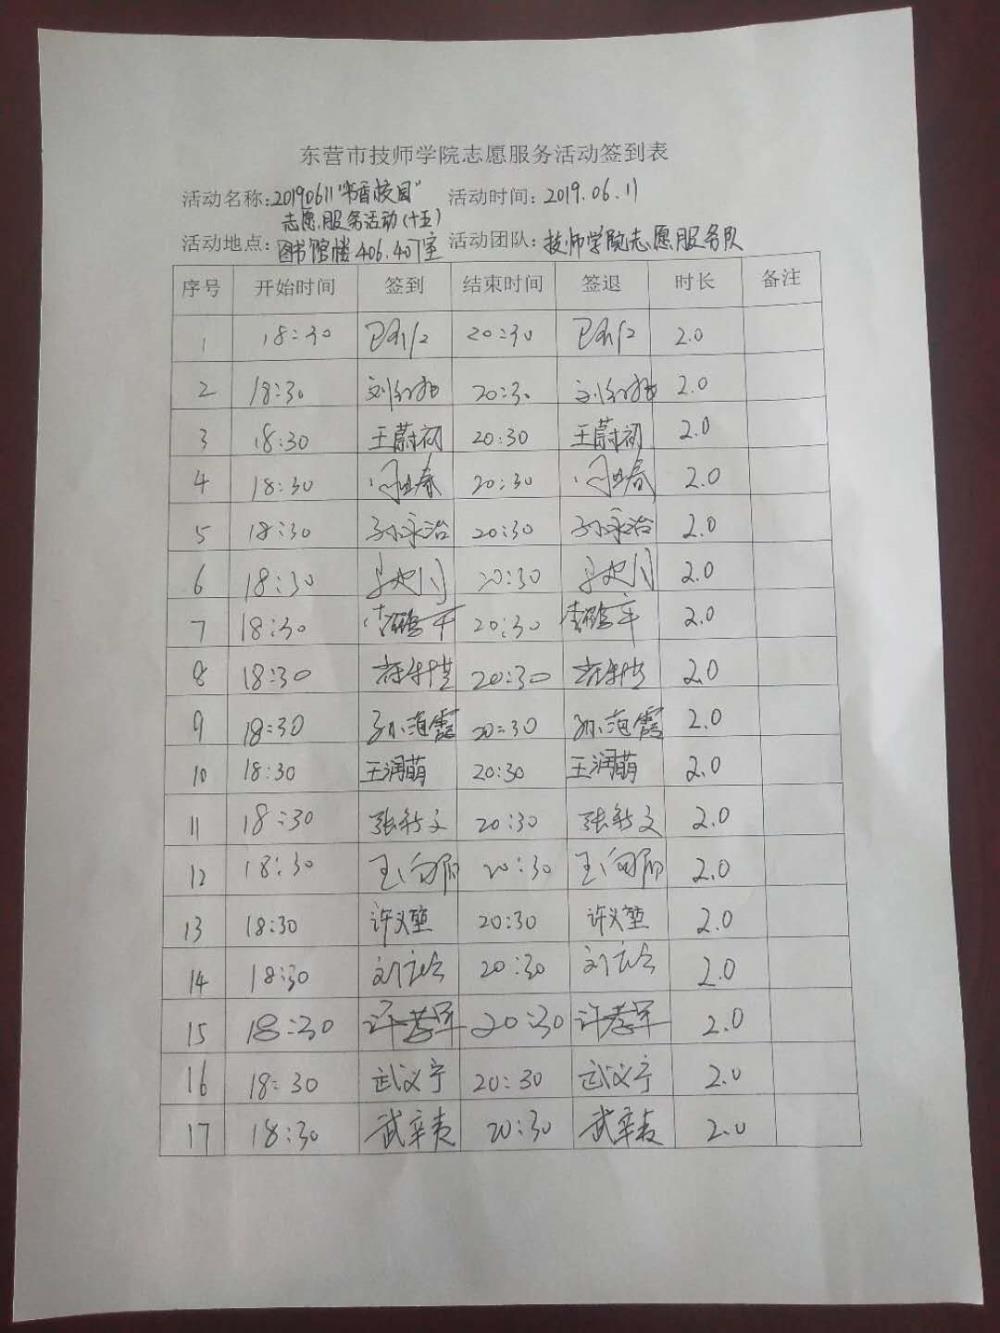 东营市技师学院志愿服务活动签到表
活动名称：20190611"书香校园" 活动时间：2019.06.11
志愿服务活动(十五)
活动地点：图书馆楼406.407室 活动团队：技师学院志愿服务队
序号 开始时间 签到 结束时间 签退 时长 备注
1 18:30 20:30 2.0
2 18:30 20:30 2.0
3 18:30 王蔚初 20:30 王蔚初 2.0
4 18:30 20:30 2.0
5 18:30 孙永治 20:30 孙永治 2.0
6 18:30 20:30 2.0
7 18:30 20:30 2.0
8 18:30 20:30 2.0
9 18:30 孙范霞 20:30 孙范霞 2.0
10 18:30 王润萌 20:30 王润萌 2.0
11 18:30 张 文 20:30 张 文 2.0
12 18:30 王 20:30 王 2.0
13 18:30 许义堃 20:30 许义堃 2.0
14 18:30 刘 20:30 刘 2.0
15 18:30 许孝军 20:30 许孝军 2.0
16 18:30 武汶宁 20:30 武汶宁 2.0
17 18:30 武辛夷 20:30 武辛夷 2.0